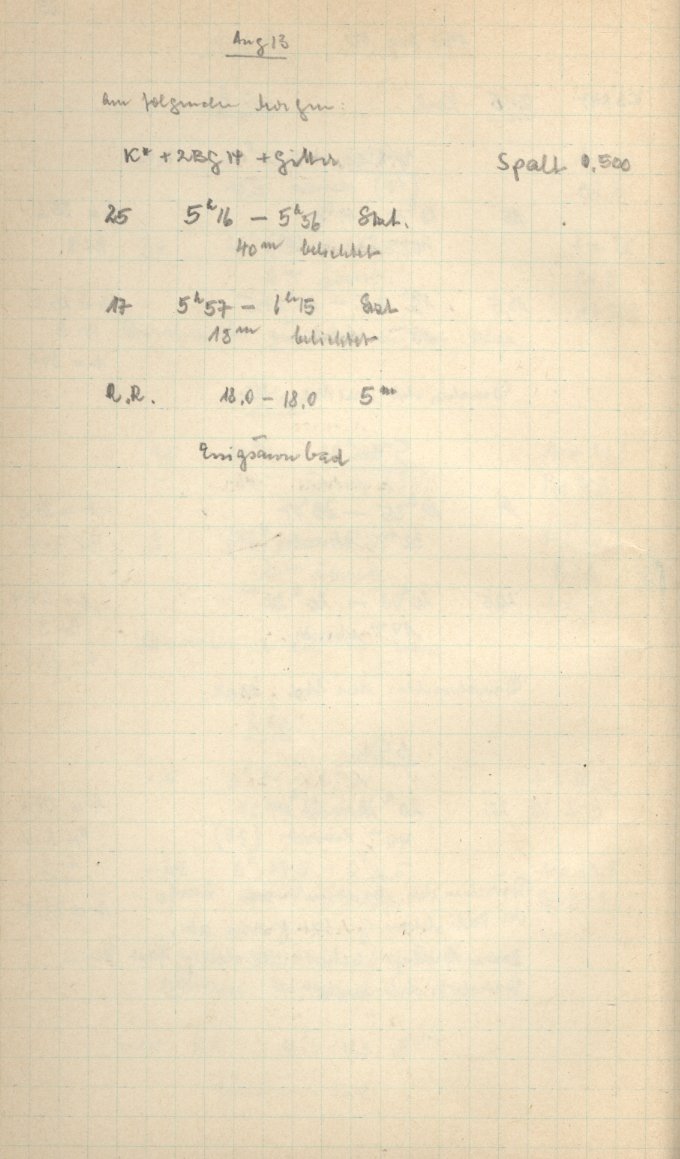 Aug 13
Am folgenden Morgen:
K* + 2BG14 + Gitter Spalt 0,500
25 5ʰ16 – 5ʰ56 Stat.
40ᵐ belichtet
17 5ʰ57 – 6ʰ15 Stat
18ᵐ belichtet
R.R. 18,0 – 18,0 5ᵐ
Essigsäurebad